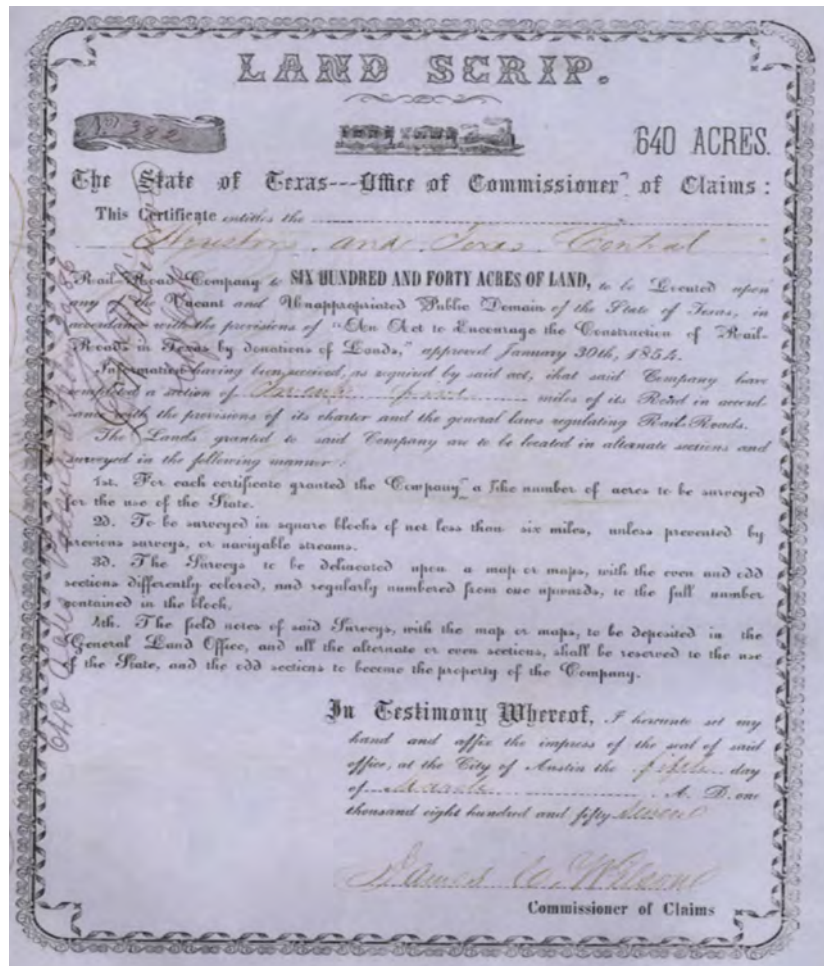 LAND SCRIP.
No 392
640 ACRES.
The State of Texas---Office of Commissioner of Claims:
This Certificate entitles the
Houston and Texas Central
Rail-Road Company to SIX HUNDRED AND FORTY ACRES OF LAND, to be Located upon
any of the Vacant and Unappropriated Public Domain of the State of Texas, in
accordance with the provisions of "An Act to Encourage the Construction of Rail-
Roads in Texas by donations of Lands," approved January 30th, 1854.
Information having been received, as required by said act, that said Company have
completed a section of Twenty five miles of its Road in accord-
ance with the provisions of its charter and the general laws regulating Rail-Roads.
The Lands granted to said Company are to be located in alternate sections and
surveyed in the following manner:
1st. For each certificate granted the Company a like number of acres to be surveyed
for the use of the State.
2d. To be surveyed in square blocks of not less than six miles, unless prevented by
previous surveys, or navigable streams.
3d. The Surveys to be delineated upon a map or maps, with the even and odd
sections differently colored, and regularly numbered from one upwards, to the full number
contained in the block.
4th. The field notes of said Surveys, with the map or maps, to be deposited in the
General Land Office, and all the alternate or even sections, shall be reserved to the use
of the State, and the odd sections to become the property of the Company.
In Testimony Whereof, I hereunto set my
hand and affix the impress of the seal of said
office, at the City of Austin the fifth day
of March A. D. one
thousand eight hundred and fifty Seven
James C. Wilson
Commissioner of Claims
640 acres Patented